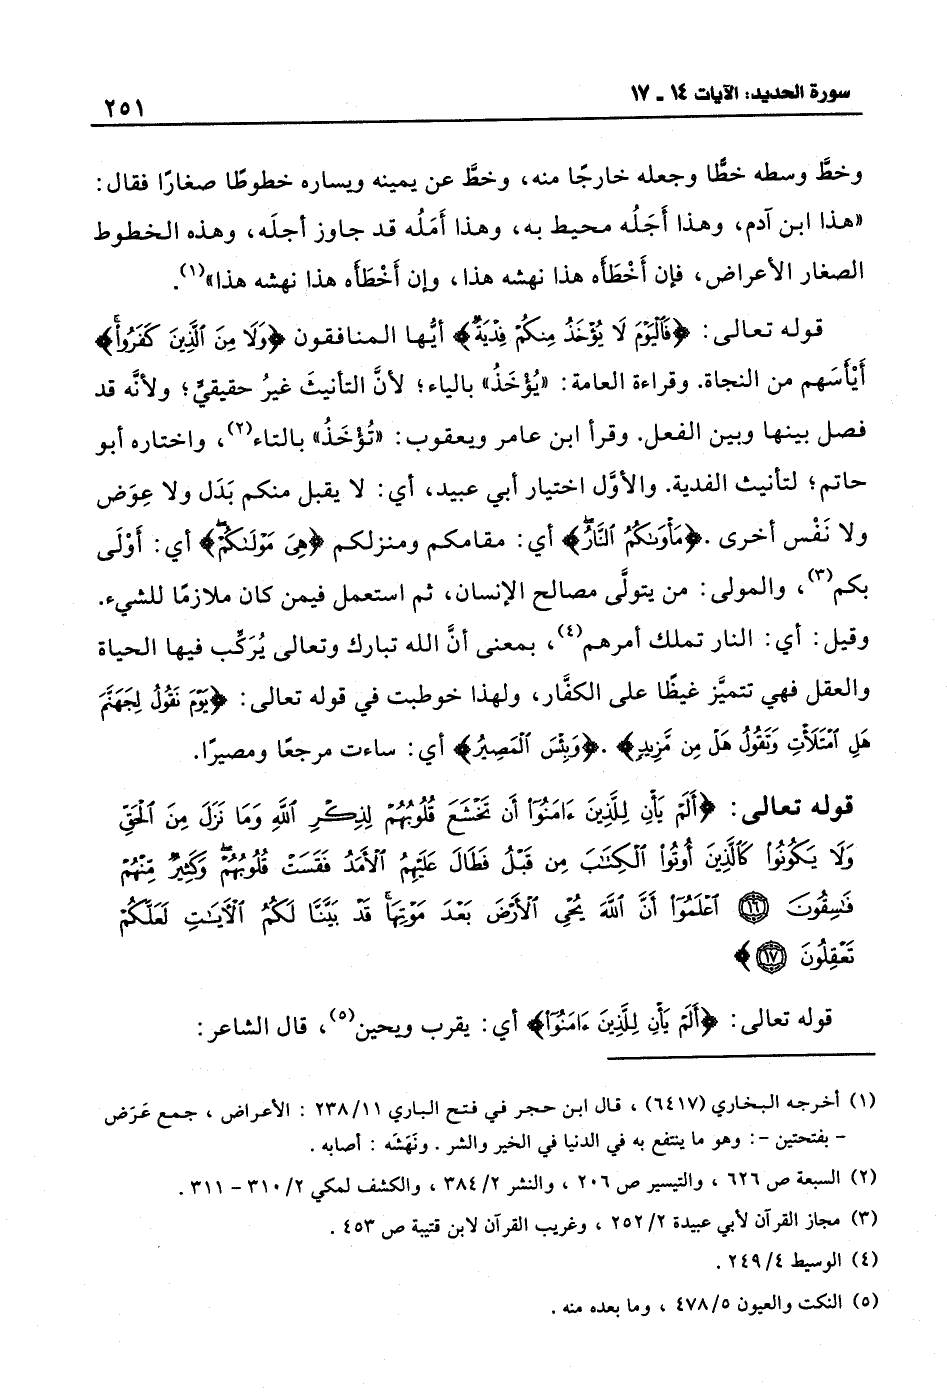 سورة الحديد: الآيات ١٤ ـ ١٧
٢٥١
وخطَّ وسطه خطًّا وجعله خارجًا منه، وخطَّ عن يمينه ويساره خطوطًا صغارًا فقال:
«هذا ابن آدم، وهذا أَجَلُه محيط به، وهذا أَمَلُه قد جاوز أجلَه، وهذه الخطوط
الصغار الأعراض، فإن أَخْطَأَه هذا نهشه هذا، وإن أَخْطَأَه هذا نهشه هذا»(١).
قوله تعالى: ﴿فَٱلْيَوْمَ لَا يُؤْخَذُ مِنكُمْ فِدْيَةٌ﴾ أيُّها المنافقون ﴿وَلَا مِنَ ٱلَّذِينَ كَفَرُواْ﴾
أَيْأَسَهم من النجاة. وقراءة العامة: «يُؤْخَذُ» بالياء؛ لأنَّ التأنيثَ غيرُ حقيقيٍّ؛ ولأنَّه قد
فصل بينها وبين الفعل. وقرأ ابن عامر ويعقوب: «تُؤْخَذُ» بالتاء(٢)، واختاره أبو
حاتم؛ لتأنيث الفدية. والأوَّل اختيار أبي عبيد، أي: لا يقبل منكم بَدَل ولا عِوَض
ولا نَفْس أخرى. ﴿مَأْوَىٰكُمُ ٱلنَّارُ﴾ أي: مقامكم ومنزلكم ﴿هِىَ مَوْلَىٰكُمْ﴾ أي: أَوْلَى
بكم(٣)، والمولى: من يتولَّى مصالح الإنسان، ثم استعمل فيمن كان ملازمًا للشيء.
وقيل: أي: النار تملك أمرهم(٤)، بمعنى أنَّ الله تبارك وتعالى يُرَكِّب فيها الحياة
والعقل فهي تتميَّز غيظًا على الكفَّار، ولهذا خوطبت في قوله تعالى: ﴿يَوْمَ نَقُولُ لِجَهَنَّمَ
هَلِ ٱمْتَلَأْتِ وَتَقُولُ هَلْ مِن مَّزِيدٍ﴾. ﴿وَبِئْسَ ٱلْمَصِيرُ﴾ أي: ساءت مرجعًا ومصيرًا.
قوله تعالى: ﴿أَلَمْ يَأْنِ لِلَّذِينَ ءَامَنُوٓاْ أَن تَخْشَعَ قُلُوبُهُمْ لِذِكْرِ ٱللَّهِ وَمَا نَزَلَ مِنَ ٱلْحَقِّ
وَلَا يَكُونُواْ كَٱلَّذِينَ أُوتُواْ ٱلْكِتَٰبَ مِن قَبْلُ فَطَالَ عَلَيْهِمُ ٱلْأَمَدُ فَقَسَتْ قُلُوبُهُمْ وَكَثِيرٌ مِّنْهُمْ
فَٰسِقُونَ ١٦ ٱعْلَمُوٓاْ أَنَّ ٱللَّهَ يُحْىِ ٱلْأَرْضَ بَعْدَ مَوْتِهَا قَدْ بَيَّنَّا لَكُمُ ٱلْءَايَٰتِ لَعَلَّكُمْ
تَعْقِلُونَ ١٧﴾
قوله تعالى: ﴿أَلَمْ يَأْنِ لِلَّذِينَ ءَامَنُوٓاْ﴾ أي: يقرب ويحين(٥)، قال الشاعر:
(١) أخرجه البخاري (٦٤١٧)، قال ابن حجر في فتح الباري ٢٣٨/١١ : الأعراض، جمع عَرَض
- بفتحتين -: وهو ما ينتفع به في الدنيا في الخير والشر. ونَهَشَه : أصابه.
(٢) السبعة ص ٦٢٦، والتيسير ص ٢٠٦، والنشر ٣٨٤/٢، والكشف لمكي ٣١٠/٢ - ٣١١.
(٣) مجاز القرآن لأبي عبيدة ٢٥٢/٢، وغريب القرآن لابن قتيبة ص ٤٥٣.
(٤) الوسيط ٢٤٩/٤.
(٥) النكت والعيون ٤٧٨/٥، وما بعده منه.